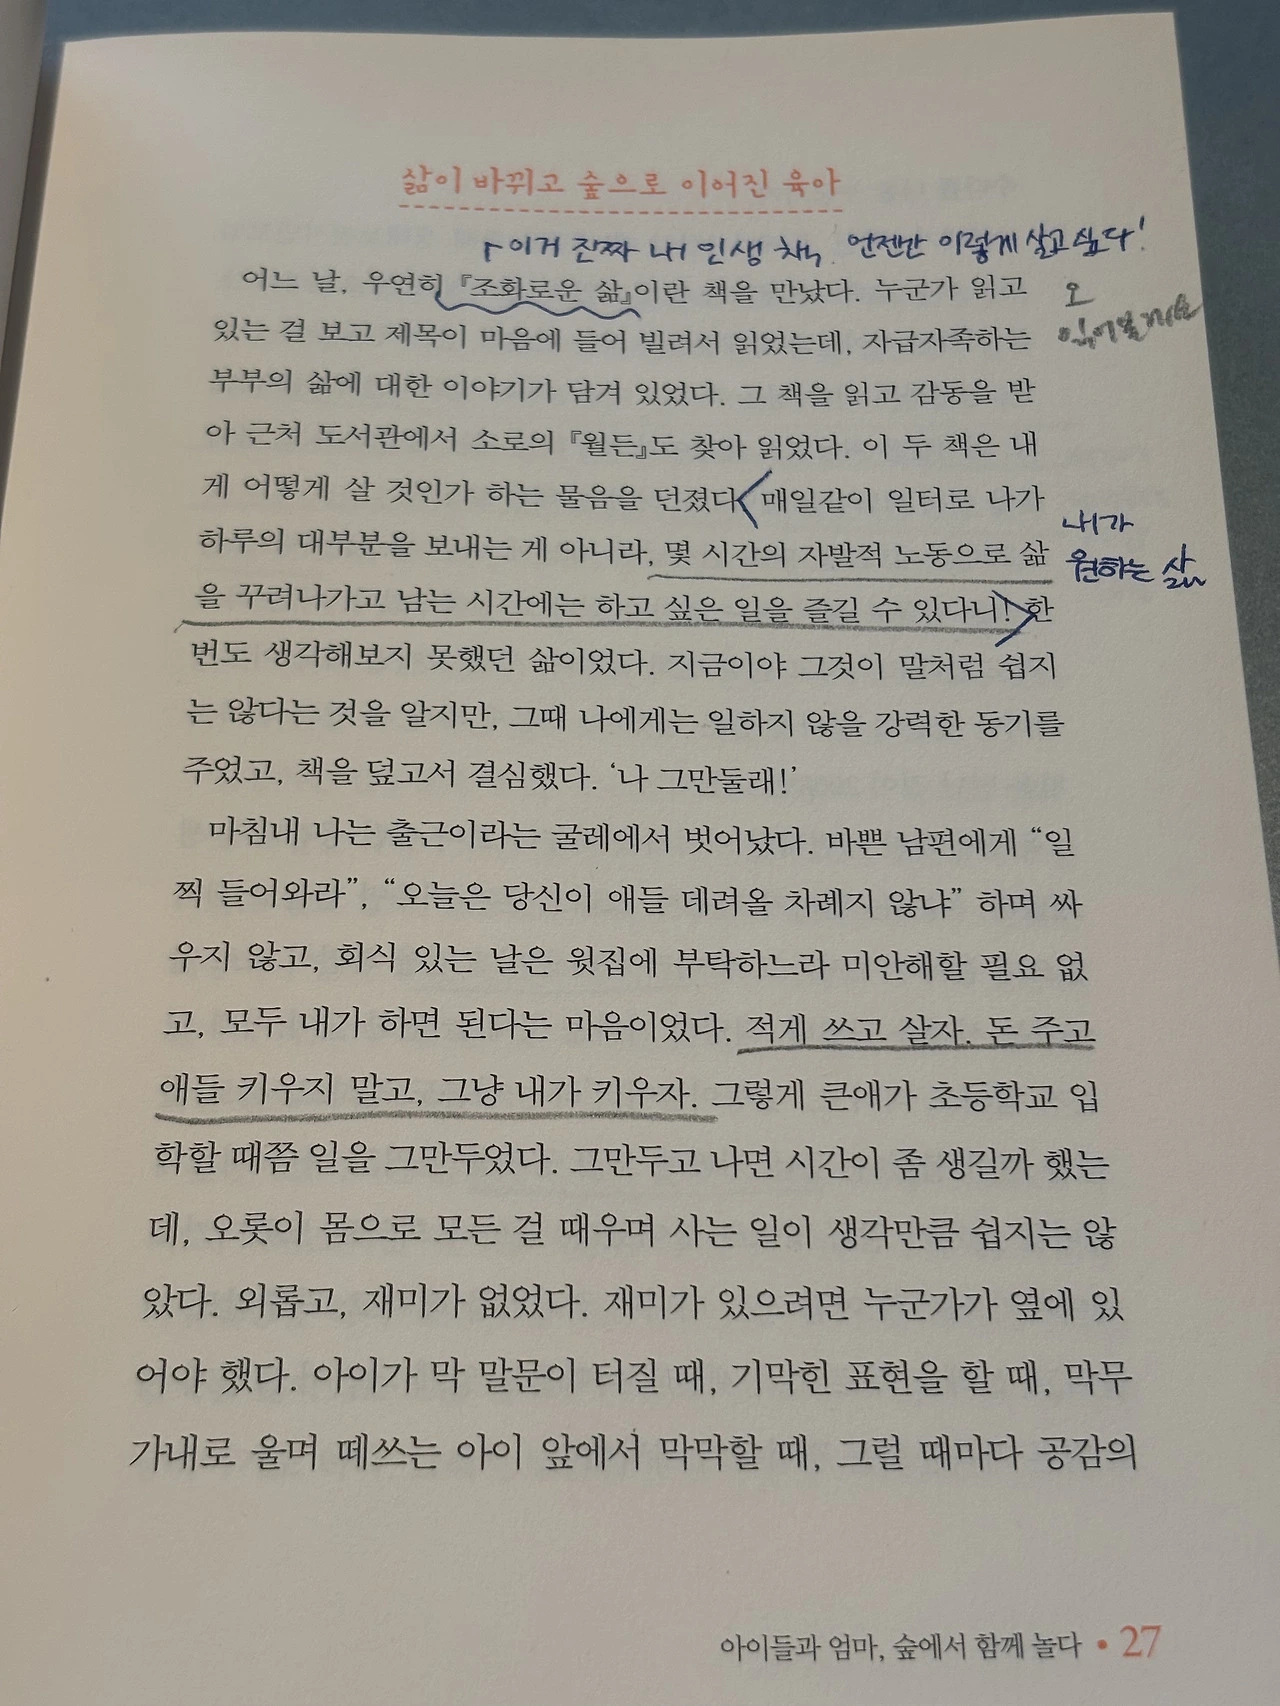 삶이 바뀌고 숲으로 이어진 육아
이거 진짜 내 인생 책, 언젠간 이렇게 살고 싶다!
어느 날, 우연히 『조화로운 삶』이란 책을 만났다. 누군가 읽고
오
읽어볼게요
있는 걸 보고 제목이 마음에 들어 빌려서 읽었는데, 자급자족하는
부부의 삶에 대한 이야기가 담겨 있었다. 그 책을 읽고 감동을 받
아 근처 도서관에서 소로의 『월든』도 찾아 읽었다. 이 두 책은 내
게 어떻게 살 것인가 하는 물음을 던졌다. 매일같이 일터로 나가
내가
원하는 삶
하루의 대부분을 보내는 게 아니라, 몇 시간의 자발적 노동으로 삶
을 꾸려나가고 남는 시간에는 하고 싶은 일을 즐길 수 있다니! 한
번도 생각해보지 못했던 삶이었다. 지금이야 그것이 말처럼 쉽지
는 않다는 것을 알지만, 그때 나에게는 일하지 않을 강력한 동기를
주었고, 책을 덮고서 결심했다. ‘나 그만둘래!’
마침내 나는 출근이라는 굴레에서 벗어났다. 바쁜 남편에게 “일
찍 들어와라”, “오늘은 당신이 애들 데려올 차례지 않냐” 하며 싸
우지 않고, 회식 있는 날은 윗집에 부탁하느라 미안해할 필요 없
고, 모두 내가 하면 된다는 마음이었다. 적게 쓰고 살자. 돈 주고
애들 키우지 말고, 그냥 내가 키우자. 그렇게 큰애가 초등학교 입
학할 때쯤 일을 그만두었다. 그만두고 나면 시간이 좀 생길까 했는
데, 오롯이 몸으로 모든 걸 때우며 사는 일이 생각만큼 쉽지는 않
았다. 외롭고, 재미가 없었다. 재미가 있으려면 누군가가 옆에 있
어야 했다. 아이가 막 말문이 터질 때, 기막힌 표현을 할 때, 막무
가내로 울며 떼쓰는 아이 앞에서 막막할 때, 그럴 때마다 공감의
아이들과 엄마, 숲에서 함께 놀다 • 27